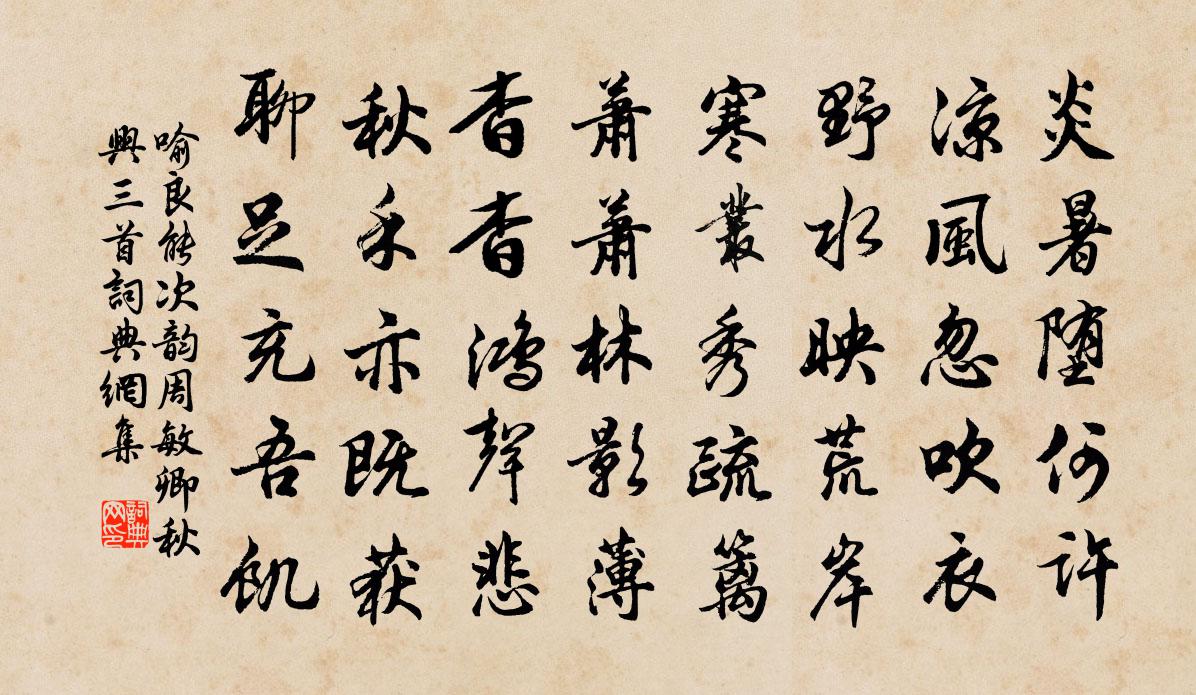 炎暑堕何許
涼風忽吹衣
野水映荒岸
寒叢秀疏篱
蕭蕭林影薄
杳杳鴻聲悲
秋禾亦既获
聊足充吾飢
喻良能次韵周敏卿秋
興三首詞典網集
詞典
网印